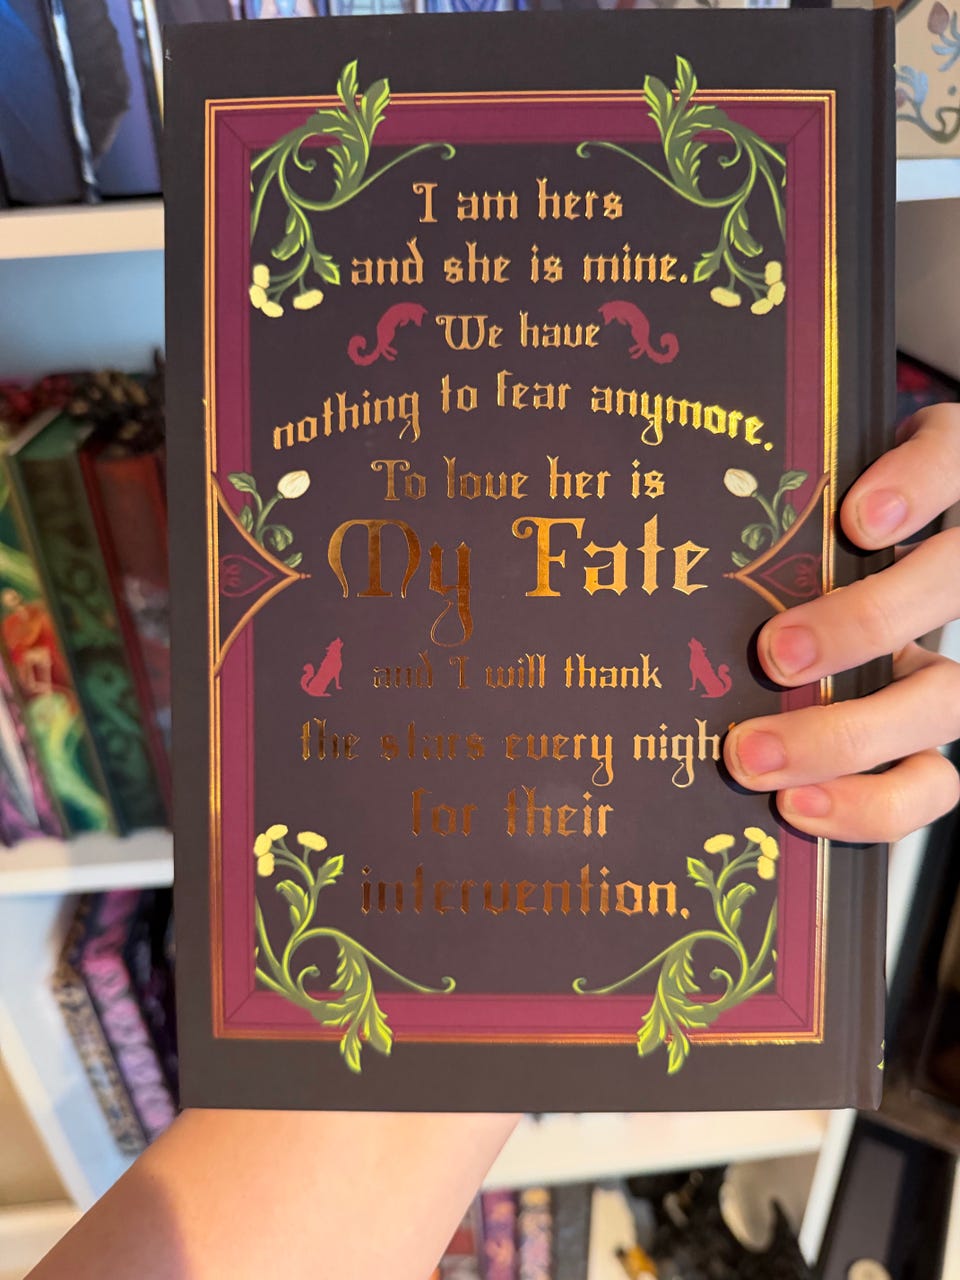 I am hers
and she is mine.
We have
nothing to fear anymore.
To love her is
My Fate
and I will thank
the stars every night
for their
intervention.